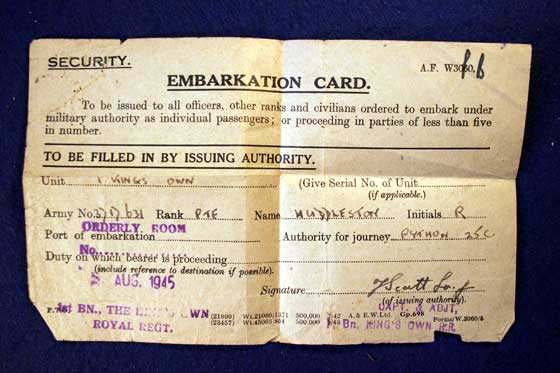 SECURITY.
A.F. W3060.
EMBARKATION CARD.
To be issued to all officers, other ranks and civilians ordered to embark under
military authority as individual passengers; or proceeding in parties of less than five
in number.
TO BE FILLED IN BY ISSUING AUTHORITY.
Unit 1 KINGS OWN (Give Serial No. of Unit
(if applicable.)
Army No. Rank PTE Name HUDDLESTON Initials R
ORDERLY ROOM
Port of embarkation Authority for journey PYTHON 25C
No.
Duty on which bearer is proceeding
(include reference to destination if possible).
AUG. 1945
Signature
(of issuing authority).
CAPT. & ADJT,
1st BN., THE KING'S OWN (21899) 500,000 7/42 A.& E.W.Ltd. Gp.698 Forms/W.3060/3
ROYAL REGT. (23457) 500,000 Bn. KING'S OWN R.R.